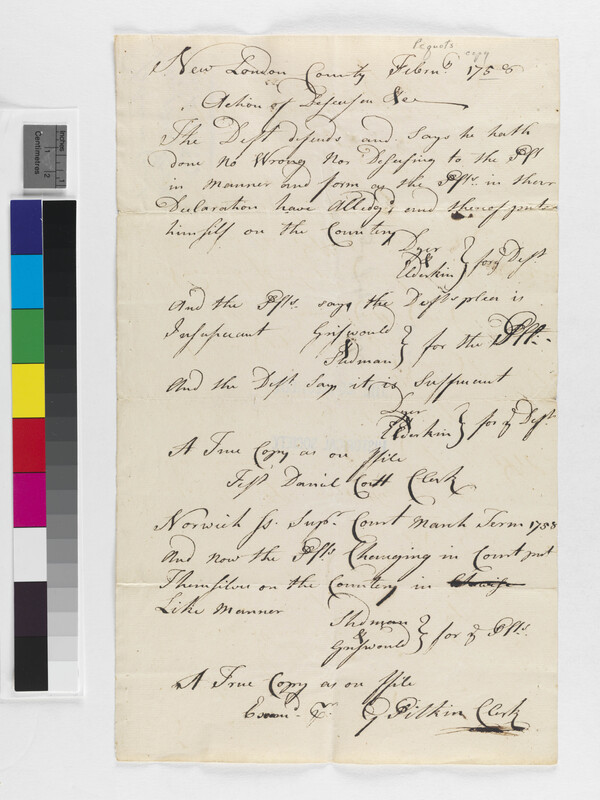 Pequots copy
New London County Febry. 1758
Action of Defenson &c
The Deft defends and Says he hath
done no Wrong nor Defusing to the Pff
in manner and form as the Pffs. in their
Declaration have Alledgd. and thereof puts
himself on the Country
Dyer
&
Elderkin } for ye Deft
And the Pffs. says the Defts plea is
Insufficient
Griswould
&
Stedman } for the Pffs.
And the Deft. Say it is Sufficient
Dyer
&
Elderkin } for ye Deft
A True Copy as on ffile
Test Daniel Coit Clerk
Norwich Ss. Supr. Court March Term 1758
And now the Pffs Changing in Court put
Themselves on the Country in
Like Manner
Stedman
&
Griswould } for ye Pffs.
A True Copy as on ffile
Examd. Pr. G Pitkin Clerk
Inches
Centimetres
1
1
2